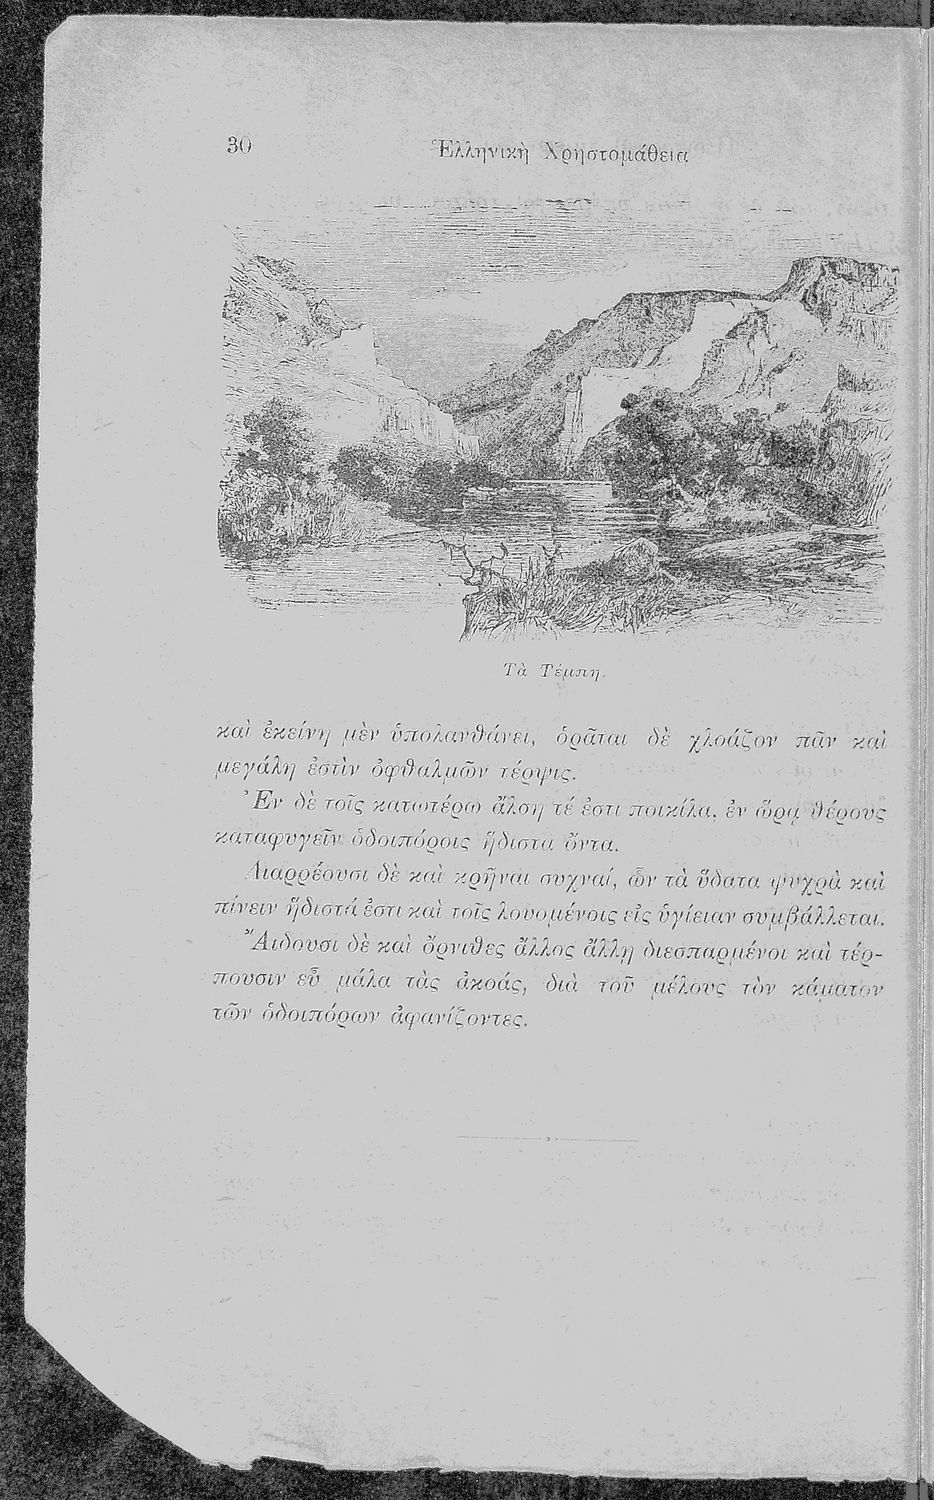 30
Ἑλληνικὴ Χρηστομάθεια
Τὰ Τέμπη.
καὶ ἐκείνη μὲν ὑπολανθάνει, ὁρᾶται δὲ χλοάζον πᾶν καὶ
μεγάλη ἐστὶν ὀφθαλμῶν τέρψις.
Ἐν δὲ τοῖς κατωτέρω ἄλση τέ ἐστι ποικίλα, ἐν ὥρᾳ θέρους
καταφυγεῖν ὁδοιπόροις ἥδιστα ὄντα.
Διαρρέουσι δὲ καὶ κρῆναι συχναί, ὧν τὰ ὕδατα ψυχρὰ καὶ
πίνειν ἥδιστά ἐστι καὶ τοῖς λουομένοις εἰς ὑγίειαν συμβάλλεται.
Ἄιδουσι δὲ καὶ ὄρνιθες ἄλλος ἄλλη διεσπαρμένοι καὶ τέρ-
πουσιν εὖ μάλα τὰς ἀκοάς, διὰ τοῦ μέλους τὸν κάματον
τῶν ὁδοιπόρων ἀφανίζοντες.